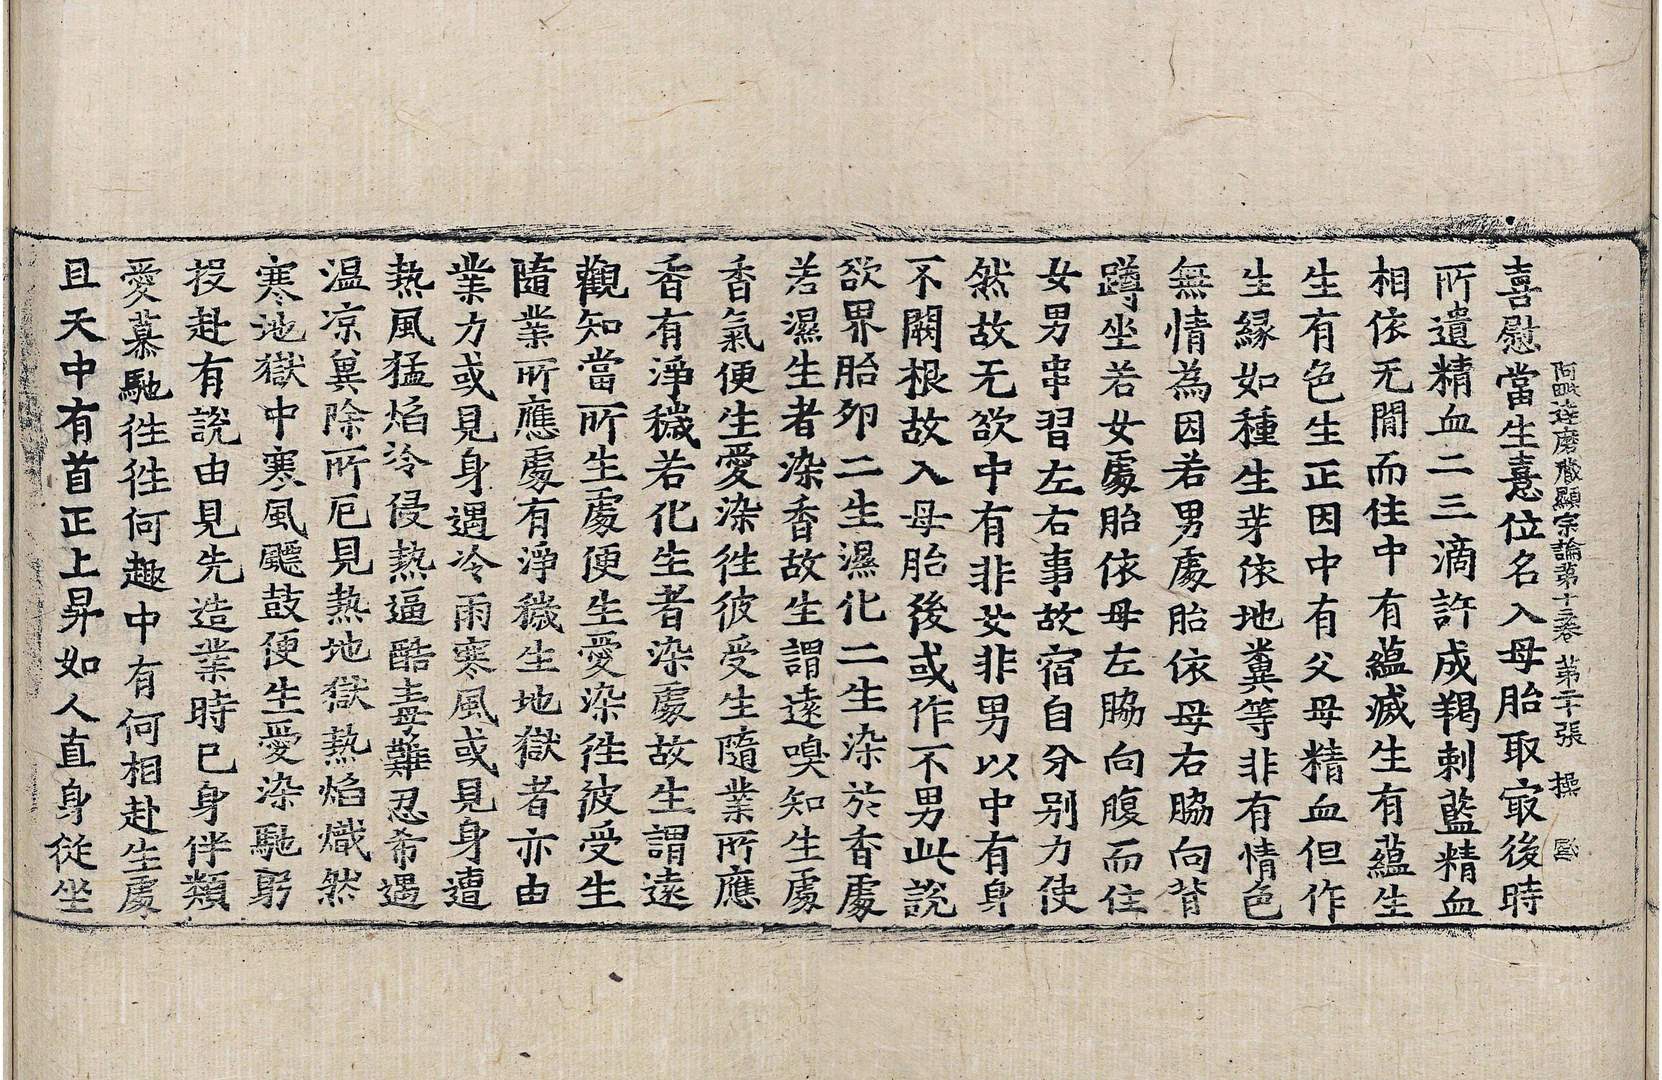 阿毗達磨藏顯宗論第十三卷 第二十張 操
喜慰當生憙位名入母胎取㝡後時
所遺精血二三滴許成羯剌藍精血
相依无閒而住中有蘊滅生有蘊生
生有色生正因中有父母精血但作
生緣如種生芽依地糞等非有情色
無情為因若男處胎依母右脇向背
蹲坐若女處胎依母左脇向腹而住
女男串習左右事故宿自分别力使
然故无欲中有非女非男以中有身
不闕根故入母胎後或作不男此説
欲界胎卵二生濕化二生染於香處
若濕生者染香故生謂遠嗅知生處
香氣便生愛染徃彼受生隨業所應
香有淨穢若化生者染處故生謂遠
觀知當所生處便生愛染徃彼受生
隨業所應處有淨穢生地獄者亦由
業力或見身遇冷雨寒風或見身遭
熱風猛焰冷侵熱逼酷毒難忍希遇
温凉冀除所厄見熱地獄熱焰熾然
寒地獄中寒風飃鼓便生愛染馳躬
投赴有説由見先造業時巳身伴類
愛慕馳徃徃何趣中有何相赴生處
且天中有首正上昇如人直身從坐